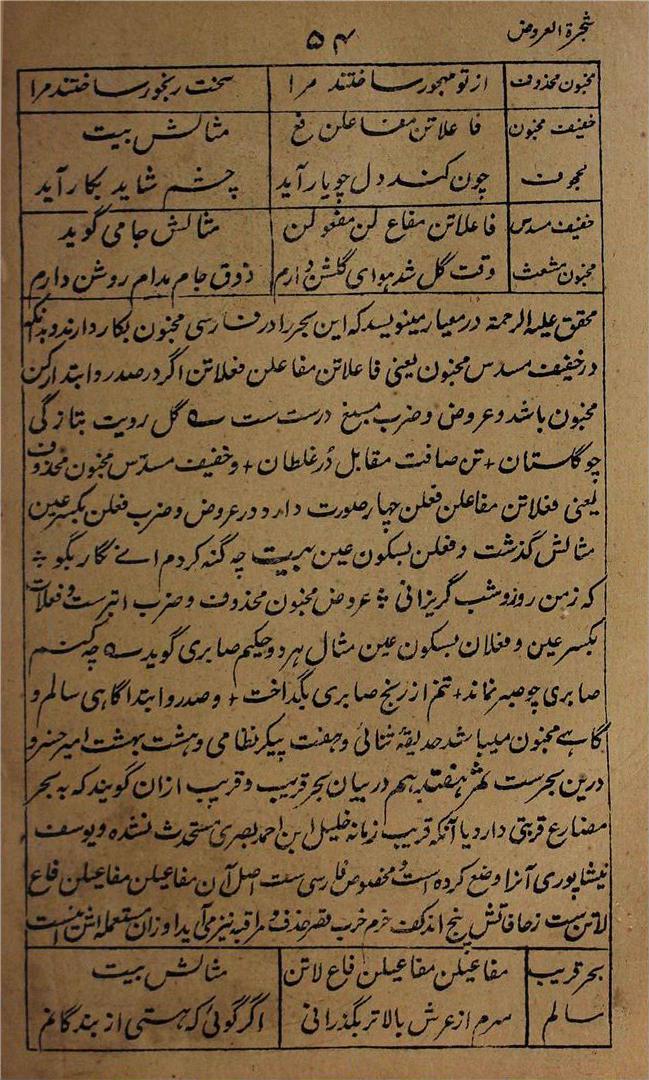 شجرة العروض
۵۴
مخبون محذوف از تو مهجور ساختند مرا سخت رنجور ساختند مرا
خفیف مخبون فاعلاتن مفاعلن فع مثالش بیت
مجحوف چون کند دل چو یار آید چشم شاید بکار آید
خفیف مسدس فاعلاتن مفاع لن مفعولن مثالش جامی گوید
مخبون مشعث وقت گل شد هوای گلشن دارم ذوق جام مدام روشن دارم
محقق علیه الرحمة در معیار مینویسد که این بحر را در فارسی مخبون بکار دارند و بدانکه
در خفیف مسدس مخبون یعنی فاعلاتن مفاعلن فعلاتن اگر در صدر و ابتدا رکن
مخبون باشد و عروض و ضرب مسبغ درست ست ؎ گل رویت بتازگی
چو گلستان + تن صافت مقابل دُر غلطان + و خفیف مسدس مخبون محذوف
یعنی فعلاتن مفاعلن فعلن چهار صورت دارد در عروض و ضرب فعلن بکسر عین
مثالش گذشت و فعلن بسکون عین بیت چه گنه کردم اے نگار بگو +
که ز من روز و شب گریزانی + عروض مخبون محذوف و ضرب ابترست و فعلات
بکسر عین و فعلان بسکون عین مثال هر دو حکیم صابری گوید ؎ چه کنم
صابری چو صبر نماند + تنم از رنج صابری بگداخت + و صدر و ابتدا گاهی سالم و
گاهے مخبون میباشد حدیقهٔ ثنائی و هفت پیکر نظامی و هشت بهشت امیر خسرو
درین بحرست ثمر هفتدهم در بیان بحر قریب و قریب ازان گویند که به بحر
مضارع قربتی دارد یا آنکه قریب زمانه خلیل ابن احمد بصری مستحدث نشده و یوسف
نیشاپوری آنرا وضع کرده است و مخصوص فارسی ست اصل آن مفاعیلن مفاعیلن فاع
لاتن ست زحافاتش پنج اند کف خرم خرب قصر حذف و مراقبه نیز می آید اوزان مستعمله اش اینست
بحر قریب مفاعیلن مفاعیلن فاع لاتن مثالش بیت
سالم سرم از عرش بالاتر بگذرانی اگر گوئی که هستی از بندگانم